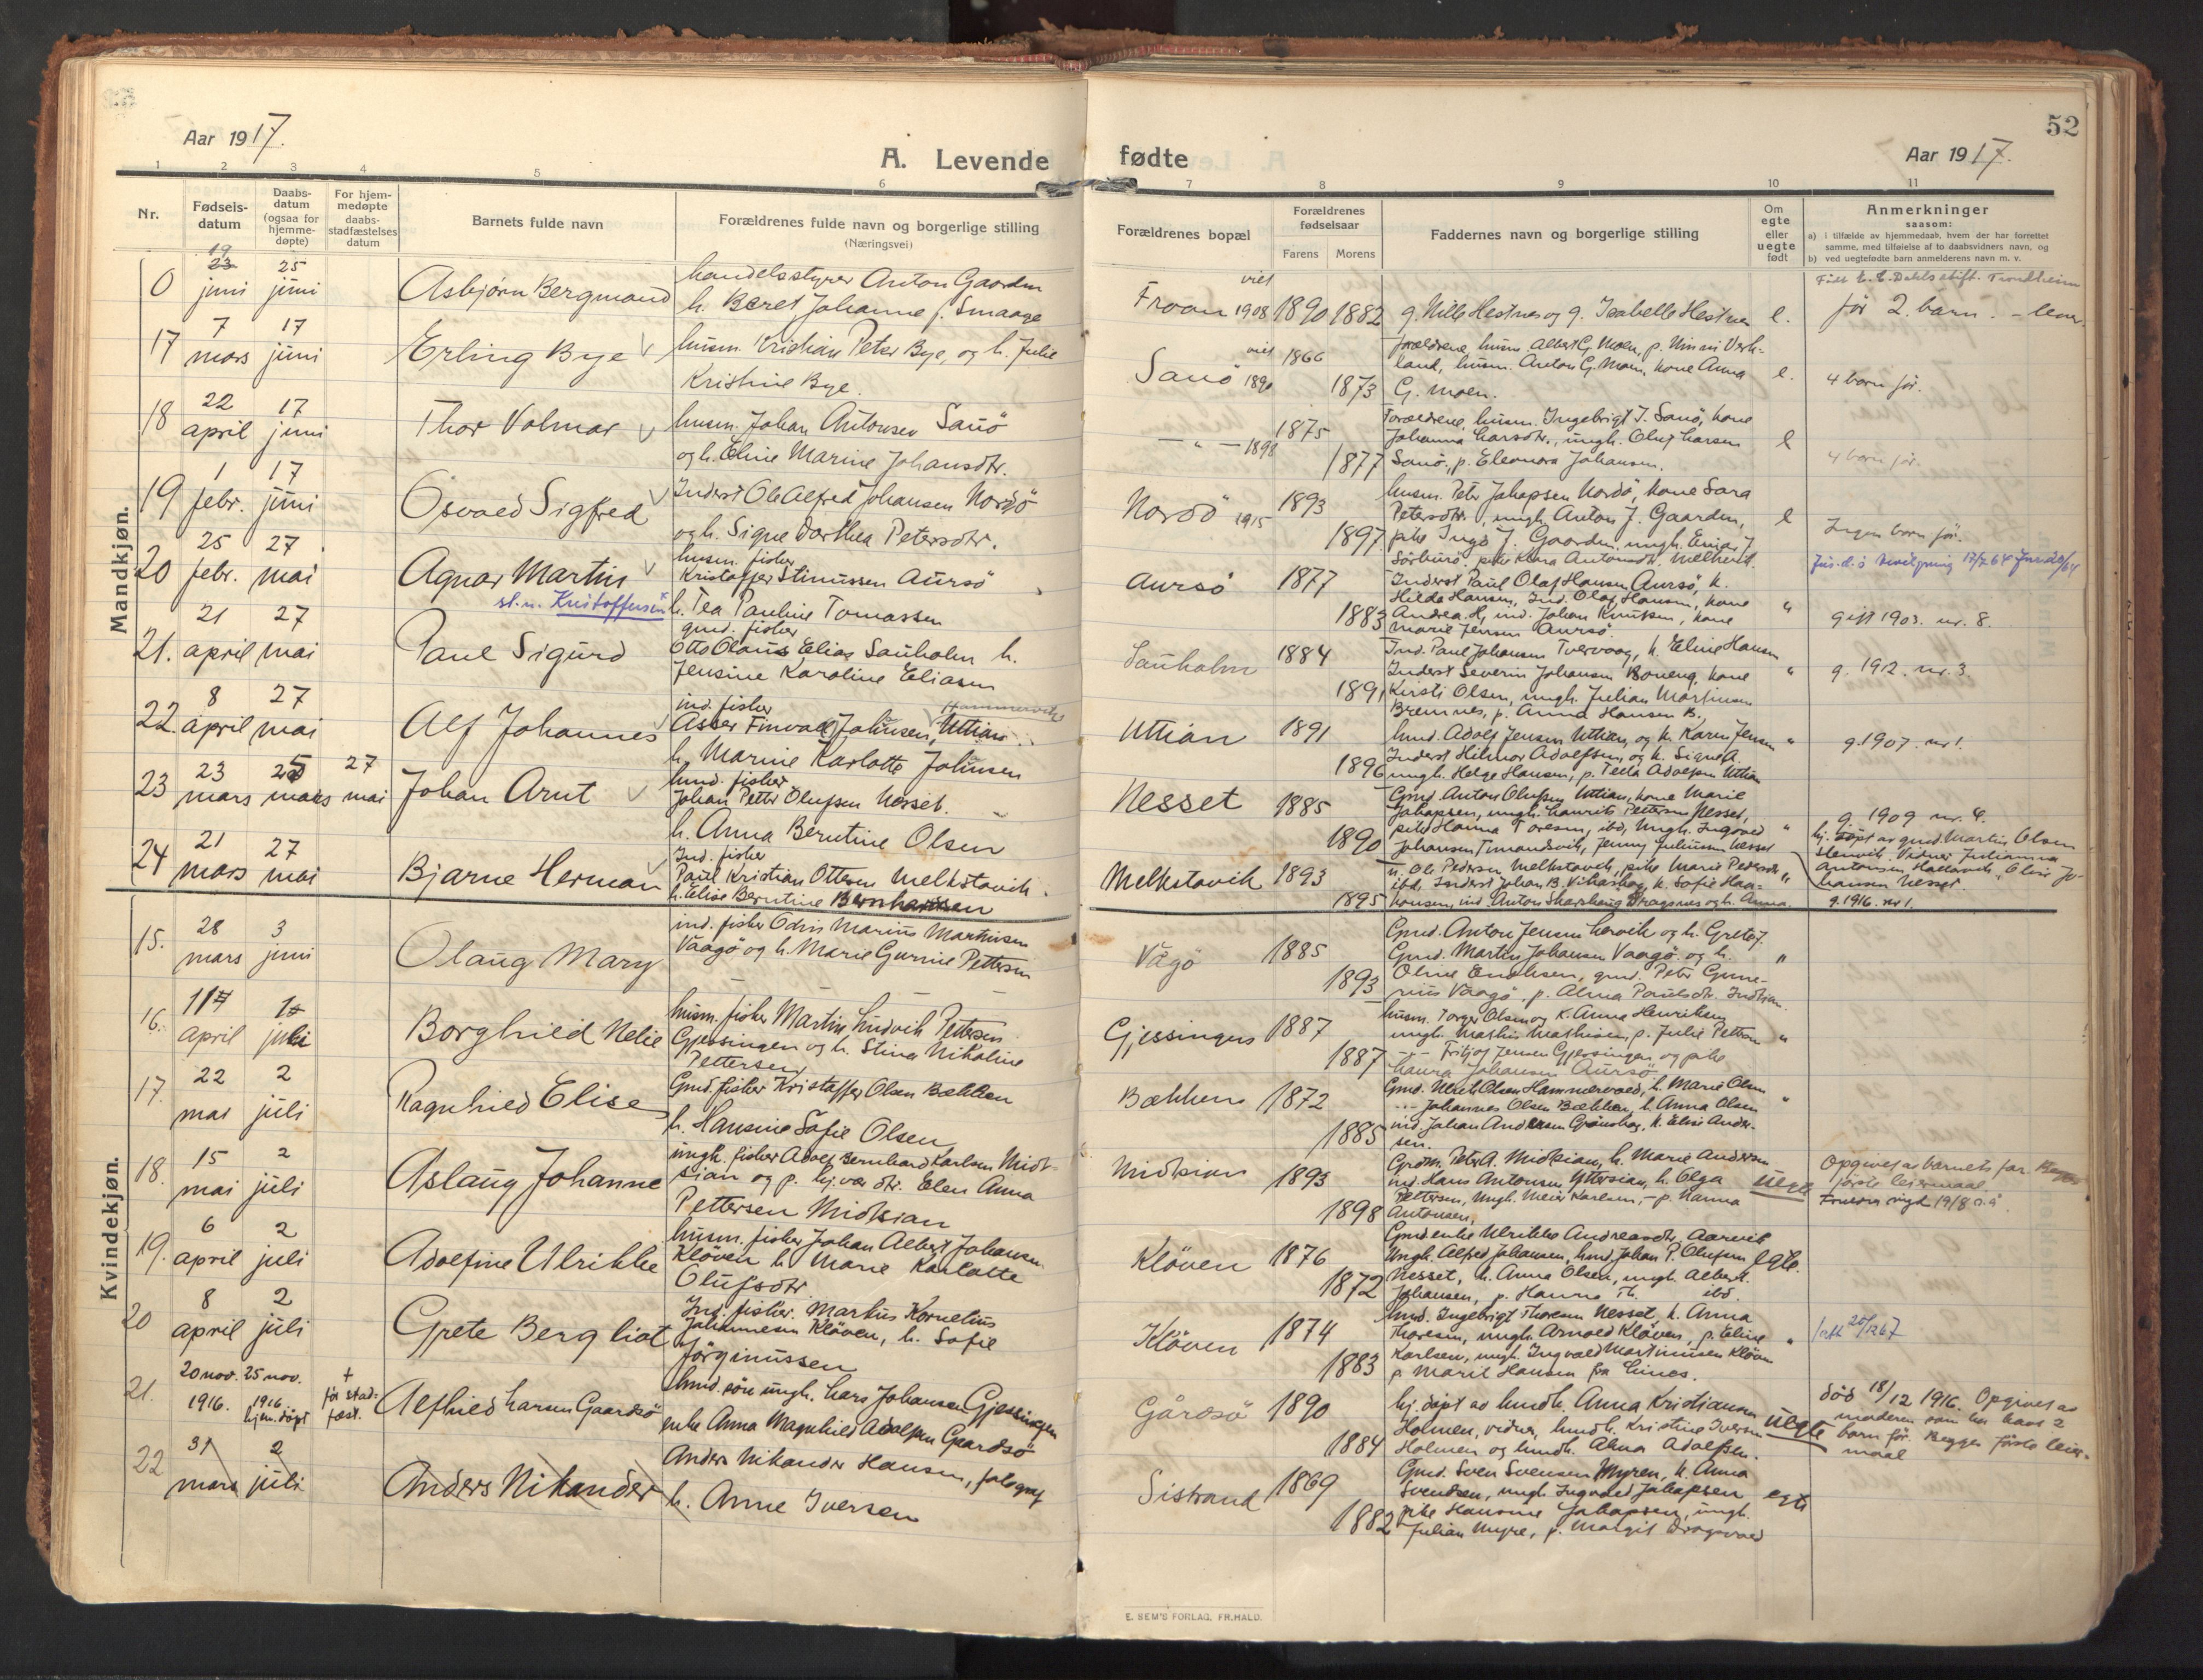 52
Aar 1917.
A. Levende
fødte
Aar 1917.
1 2 3 4 5 6 7 8 9 10 11
Nr.
Fødsels-
datum
Daabs-
datum
(ogsaa for
hjemme-
døpte)
For hjem-
medøpte
daabs-
stadfæstelses
datum
Barnets fulde navn
Forældrenes fulde navn og borgerlige stilling
(Næringsvei)
Forældrenes bopæl
Forældrenes
fødselsaar
Farens Morens
Faddernes navn og borgerlige stilling
Om
egte
eller
uegte
født
Anmerkninger
saasom:
a) i tilfælde av hjemmedaab, hvem der har forrettet
samme, med tilføielse af to daabsvidners navn, og
b) ved uegtefødte barn anmelderens navn m. v.
Mandkjøn.
0 19 23 juni 25 juni Asbjørn Bergmand
handelsstyrer Anton Gaarden
h. Beret Johanne f. Smaage
Froan viet 1908 1890 1882
g. Nille Hestnes og g. Isabelle Hestnes e.
før 2. barn. - lever
17 7 mars 17 juni Erling Bye
husm. Kristian Peter Bye, og h. Julie
Kristine Bye.
Sanö viet 1890 1866 1873
Forældrene, husm Albert G. Moen, p.
land, husm. Anton G. Moen, kone Anna
G. Moen. e.
4 barn før.
18 22 april 17 juni Thor Volmar
husm. Johan Antonsen Sanö
og h. Eline Marine Johansdtr.
— " — 1898 1875 1877
Forældrene, husm. Ingebrigt J. Sanö, kone
Johanna Larsdtr., ungk. Oluf Larsen
Sanö, p. Eleonora Johansen. e
4 barn før.
19 1 febr. 17 juni Osvald Sigfred
Inderst Ole Alfred Johansen Nordö
og h. Signe Dorthea Petersdtr.
Nordö 1915 1893 1897
husm. Peter Johansen Nordö, kone Sara
Petersdtr., ungk. Anton J. Gaarden,
pike Inga J. Gaarden, ungk. Einar J.
e
Ingen barn før.
20 25 febr. 27 mai Agnar Martin
sl.n. Kristoffersen
husm. fisker
Kristoffer Stinussen Aursö
h. Tea Pauline Tomassen
Aursö 1877 1883
Inderst Paul Olaf Hansen Aursö, k.
Hilda Hansen, Ind. Olaf Hansen, kone
Andrea H, ind. Johan Knutsen, kone
Marie Jensen Aursö. "
gift 1903. nr. 8.
21. 21 april 27 mai Paul Sigurd
gmd. fisker
Otto Olaus Elias Sauholm h.
Jensine Karoline Eliasen
Sauholm 1884 1891
Ind. Paul Johansen Tvervaag, k. Eline Hansen
Inderst Severin Johansen Boneng, kone
Kirsti Olsen, ungk. Julian Martinsen
Bremnes, p. Anna Hansen B. "
g. 1912. nr. 3.
22. 8 april 27 mai Alf Johannes
ind. fisker
Asser Finvald Johnsen, Uttian
h. Marine Karlotte Johnsen
Uttian 1891 1896
husd. Adolf Jensen Uttian, og k. Karen Jensen
Inderst Hilmar Adolfsen og k. Signe A.
ungk. Helge Hansen, p. Tella Adolfsen Uttian "
g. 1907. nr 1.
23 23 mars 25 mars 27 mai Johan Arnt
husd. fisker
Johan Petter Olufsen Nesset.
h. Anna Berntine Olsen
Nesset 1885 1890
Gmd Anton Olufsen Uttian, kone Marie
Johansen, ungk. Laurits Pettersen Nesset,
pike Hanna Toresen, ibd, Ungk. Ingvald
Johansen Smaavik, Jenny Juliussen Nesset "
g. 1909 nr. 4.
hj. døpt av gmd. Martin Olsen
24 21 mars 27 mai Bjarne Herman
Ind. fisker
Paul Kristian Ottersen Melkstavik.
h. Elise Berntine Bernhardsen
Melkstavik 1893 1895
u. Ole Pedersen Melkstavik, pike Marie Pedersdtr
"
g. 1916. nr 1.
Kvindekjøn.
15. 28 mars 3 juni Olaug Mary
ind. fisker Odin Marius Martinsen
Vaagö og h. Marie Gurine Pettersen
Vågö 1885 1893
Gmd. Anton Jensen Lervik og h. Grete J.
Gmd. Martin Johansen Vaagö og h.
Oline Enoksen, gmd. Peter Gune-
rius Vaagö. p. Alma Paulsdtr. "
16. 11 april 1 juli Borghild Nelie
husm. fisker Martin Ludvik Pettersen
Gjessingen og h. Stina Nikoline
Pettersen
Gjessingen 1887 1887
husm. Torger Olsen og k. Anna Henriksen
ungk. Mathis Mathisen, p. Julie Petters "
Fritjof Jensen Gjessingen og pike
Laura Johansen Aursö
17. 22 mai 2 juli Ragnhild Elise
Gmd. fisker Kristoffer Olsen Bækken
h. Hansine Sofie Olsen
Bækken 1872 1885
Gmd. Ulrik Olsen Hammervold, k. Marie Olsen
Johannes Olsen Bækken, k. Anna Olsen
ind. Johan Andersen Grönskag, k. Elise Ander-
sen. "
18. 15 mai 2 juli Aslaug Johanne
ungk. fisker Adolf Bernhard Karlsen Midt-
sian og p. hj.vær. dtr. Elen Anna
Pettersen Midtsian
Midtsian 1893 1898
Grdm. Peter A. Midtsian, h. Marie Andersen
ind. Hans Antonsen Yttersian, h. Olga
Pettersen, Ungk. Meier Karlsen, - p. Hanna
Antonsen, uegte
Opgivet av barnets far. Begges
første leiermaal.
19. 6 april 2 juli Adolfine Ulrikke
husm. fisker Johan Albert Johansen
Klöven h. Marie Karlotte
Olufsdtr
Klöven 1876 1872
Gmd enke Ulrikke Andreasdtr, Aarvik
Ungk. Alfred Johansen, husd Johan P. Olufsen
Nesset, h. Anna Olsen, ungk. Albert.
Johansen, p. Hanna Th. ibd. egte.
20 8 april 2 juli Grete Bergliot
Ind. fisker. Martin Kornelius
Johannesen Klöven, h. Sofie
Jörginussen
Klöven 1874 1883
husd. Ingebrigt Thoresen Nesset k. Anna
Thoresen, ungk. Arnold Klöven, p. Eline
Karlsen, ungk. Ingvald Martinusen Klöven
p Marit Hansen fra Hines. "
21. 20 nov. 1916. 25 nov. 1916 hjem. døpt † før stad-fæst. Alfhild Larsen Gaardsö
husd. sön ungk. Lars Johansen Gjessingen
enke Anna Magnhild Adolfsen Gaardsö
Gårdsö 1890 1884
hj. døpt av husdk. Anna Kristiansen
Holmen, vidner, husdk. Kristine Iversen
Holmen og husdk. Alma Adolfsen. uegte
död 18/12 1916. Opgivet av
moderen som har havt 2
barn før. Begges første leier-
maal
22 31 mars 2 juli Anders Nikander
Anders Nikander Hansen, fotograf
h. Anne Iversen
Sistrand 1869 1882
Gmd. Sven Svensen Myren, k. Anna
Svendsen, ungk Ingvald Johansen
pike Hansine Johansen, ungk.
Julian Myre, p. Margit Dragsvold egte
E. SEM'S FORLAG, FR.HALD.